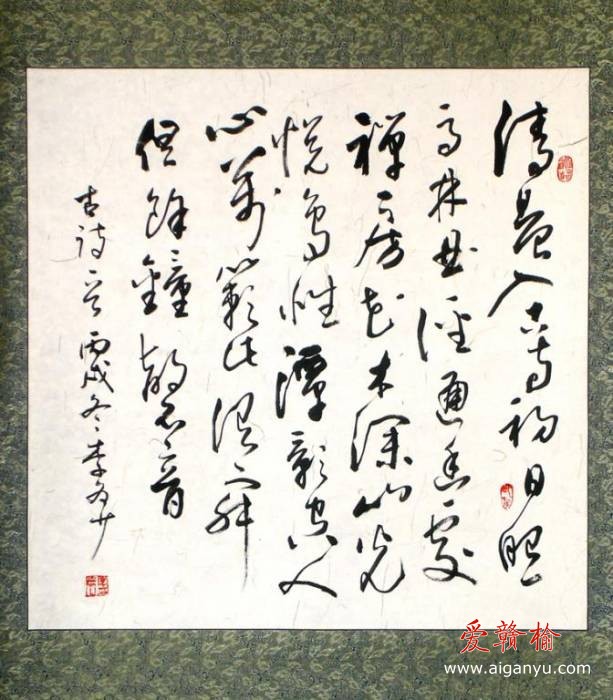 清晨入古寺初日照
高林曲徑通幽處
禪房花木深山光
悅鳥性潭影空人
心萬籟此俱寂
但餘鐘磬音
古詩一首 丙戌冬 李
爱赣榆
www.aiganyu.com